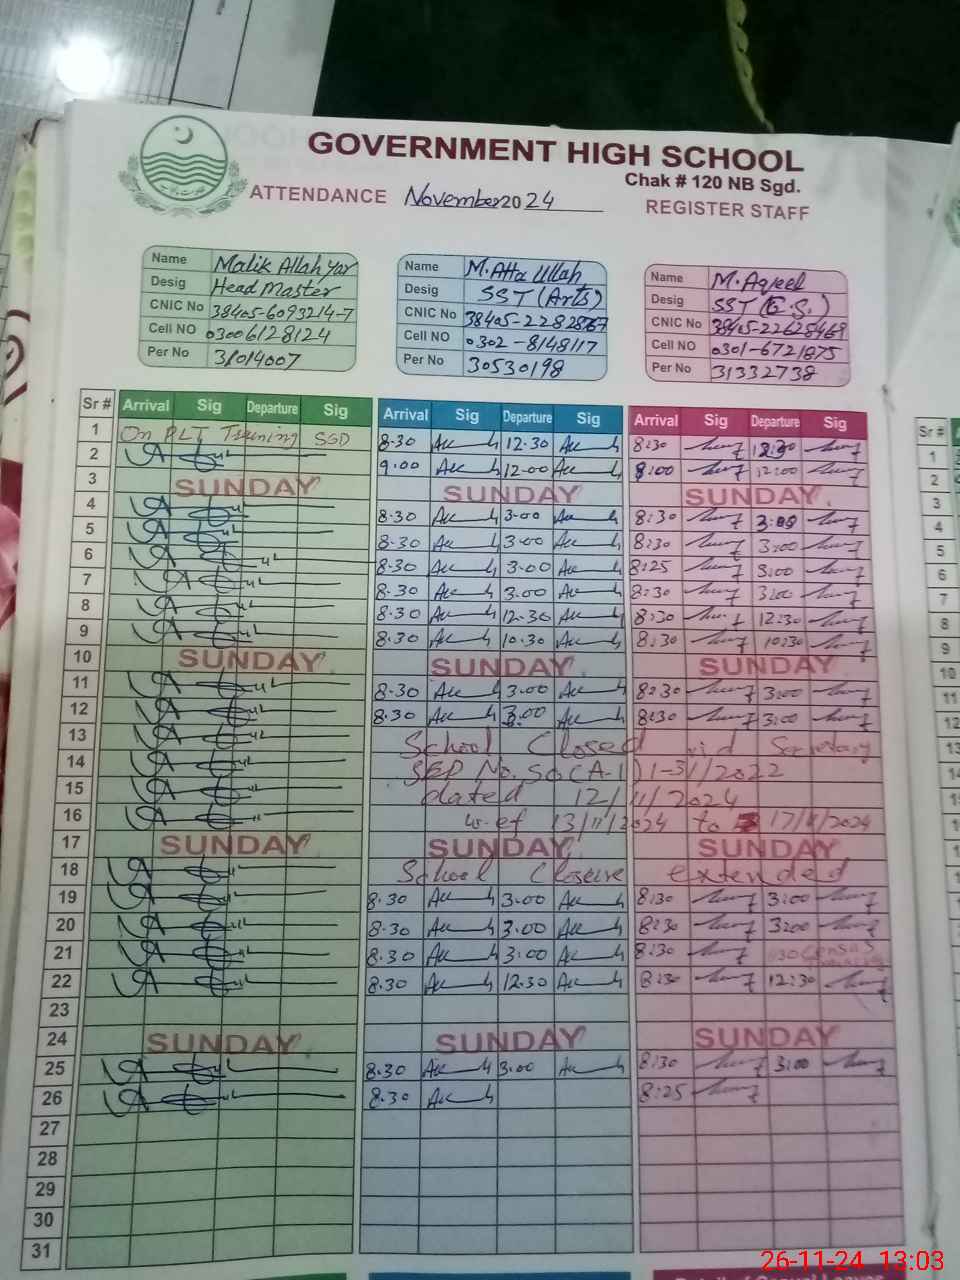 GOVERNMENT HIGH SCHOOL
Chak # 120 NB Sgd.
ATTENDANCE November 2024 REGISTER STAFF
Name Malik Allah Yar
Desig Head Master
CNIC No 38405-6093214-7
Cell NO 03006128124
Per No 31014007
Name M. Atta Ullah
Desig SST (Arts)
CNIC No
Cell NO 0302-8148117
Per No 30530198
Name M. Aqeel
Desig SST
CNIC No
Cell NO 0301-6721875
Per No 31332738
Sr # Arrival Sig Departure Sig Arrival Sig Departure Sig Arrival Sig Departure Sig Sr #
1 On PLT SGD 8.30 12.30 8:30 1
2 9.00 12.00 12:00 2
3 SUNDAY SUNDAY SUNDAY 3
4 8.30 3.00 8:30 4
5 8.30 3.00 8:30 3:00 5
6 8.30 3.00 8:25 3:00 6
7 8.30 3.00 8:30 3:00 7
8 8.30 12.30 8:30 12:30 8
9 8.30 10.30 8:30 10:30 9
10 SUNDAY SUNDAY SUNDAY 10
11 8.30 3.00 8:30 3:00 11
12 8.30 3.00 8:30 3:00 12
13 School Closed vid Secretary 13
14 SED No. SO(A-1)1-31/2022 14
15 dated 12/11/2024
16 w-ef 13/11/2024 to 17/11/2024 16
17 SUNDAY SUNDAY SUNDAY
18 School Closure extended 18
19 8.30 3.00 8:30 3:00 19
20 8.30 3.00 8:30 3:00 20
21 8.30 3:00 8:30 21
22 8.30 12.30 8:30 12:30 22
23
24 SUNDAY SUNDAY SUNDAY
25 8.30 3.00 8:30 3:00
26 8.30 8:25
27
28
29
30
31
26-11-24 13:03